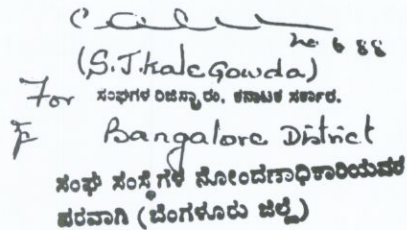 6 88
(S.T.KaleGowda)
For ಸಂಘಗಳ ರಿಜಿಸ್ಟ್ರಾರು, ಕರ್ನಾಟಕ ಸರ್ಕಾರ.
Bangalore District
ಸಂಘ ಸಂಸ್ಥೆಗಳ ನೋಂದಣಾಧಿಕಾರಿಯವರ
ಪರವಾಗಿ (ಬೆಂಗಳೂರು ಜಿಲ್ಲೆ)